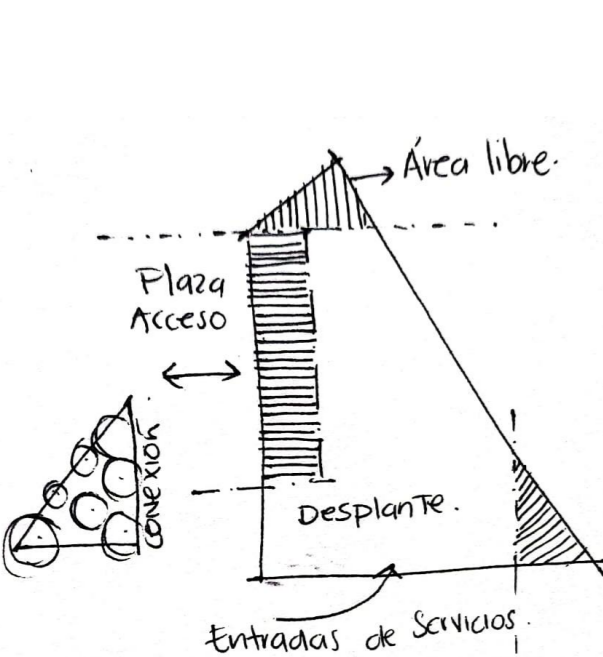 Área libre.
Plaza
Acceso
conexión
Desplante.
Entradas de Servicios.